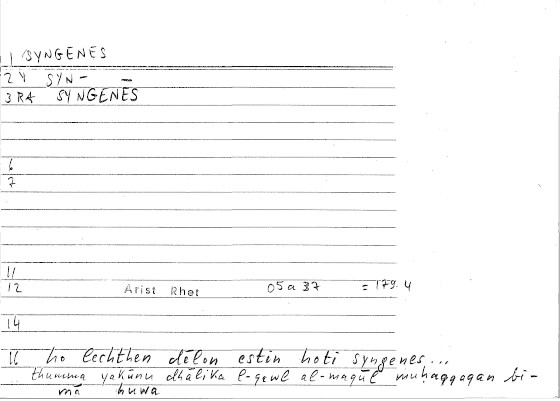 1 SYNGENES
2 Y SYN- –
3 RA SYNGENES
6
7
11
12 Arist Rhet 05a37 = 179.4
14
16 ho lechthen dēlon estin hoti syngenes...
thumma yakūnu dhālika l-qawl al-maqūl muḥaqqaqan bi-
mā huwa